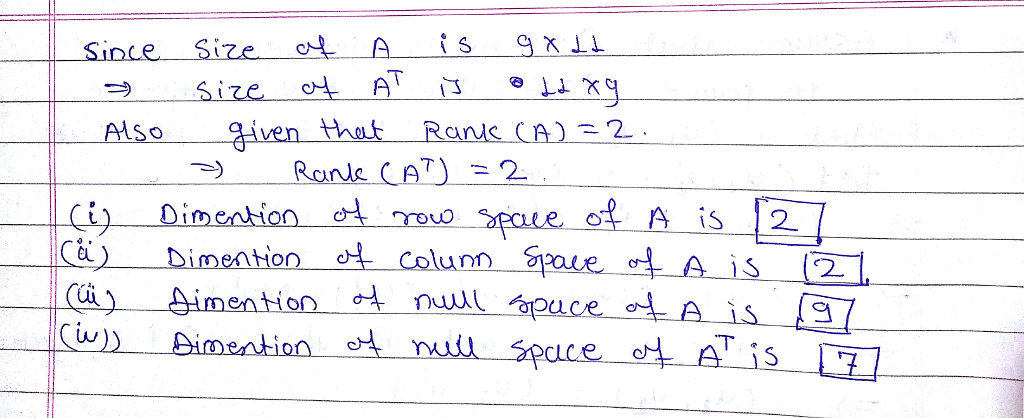 Since Size of A is 9 x 11
⇒ Size of Aᵀ is 11 x 9
Also given that Rank (A) = 2.
⇒ Rank (Aᵀ) = 2.
(i) Dimention of row space of A is 2
(ii) Dimention of column Space of A is 2
(iii) Dimention of null space of A is 9
(iv)) Dimention of null space of Aᵀ is 7